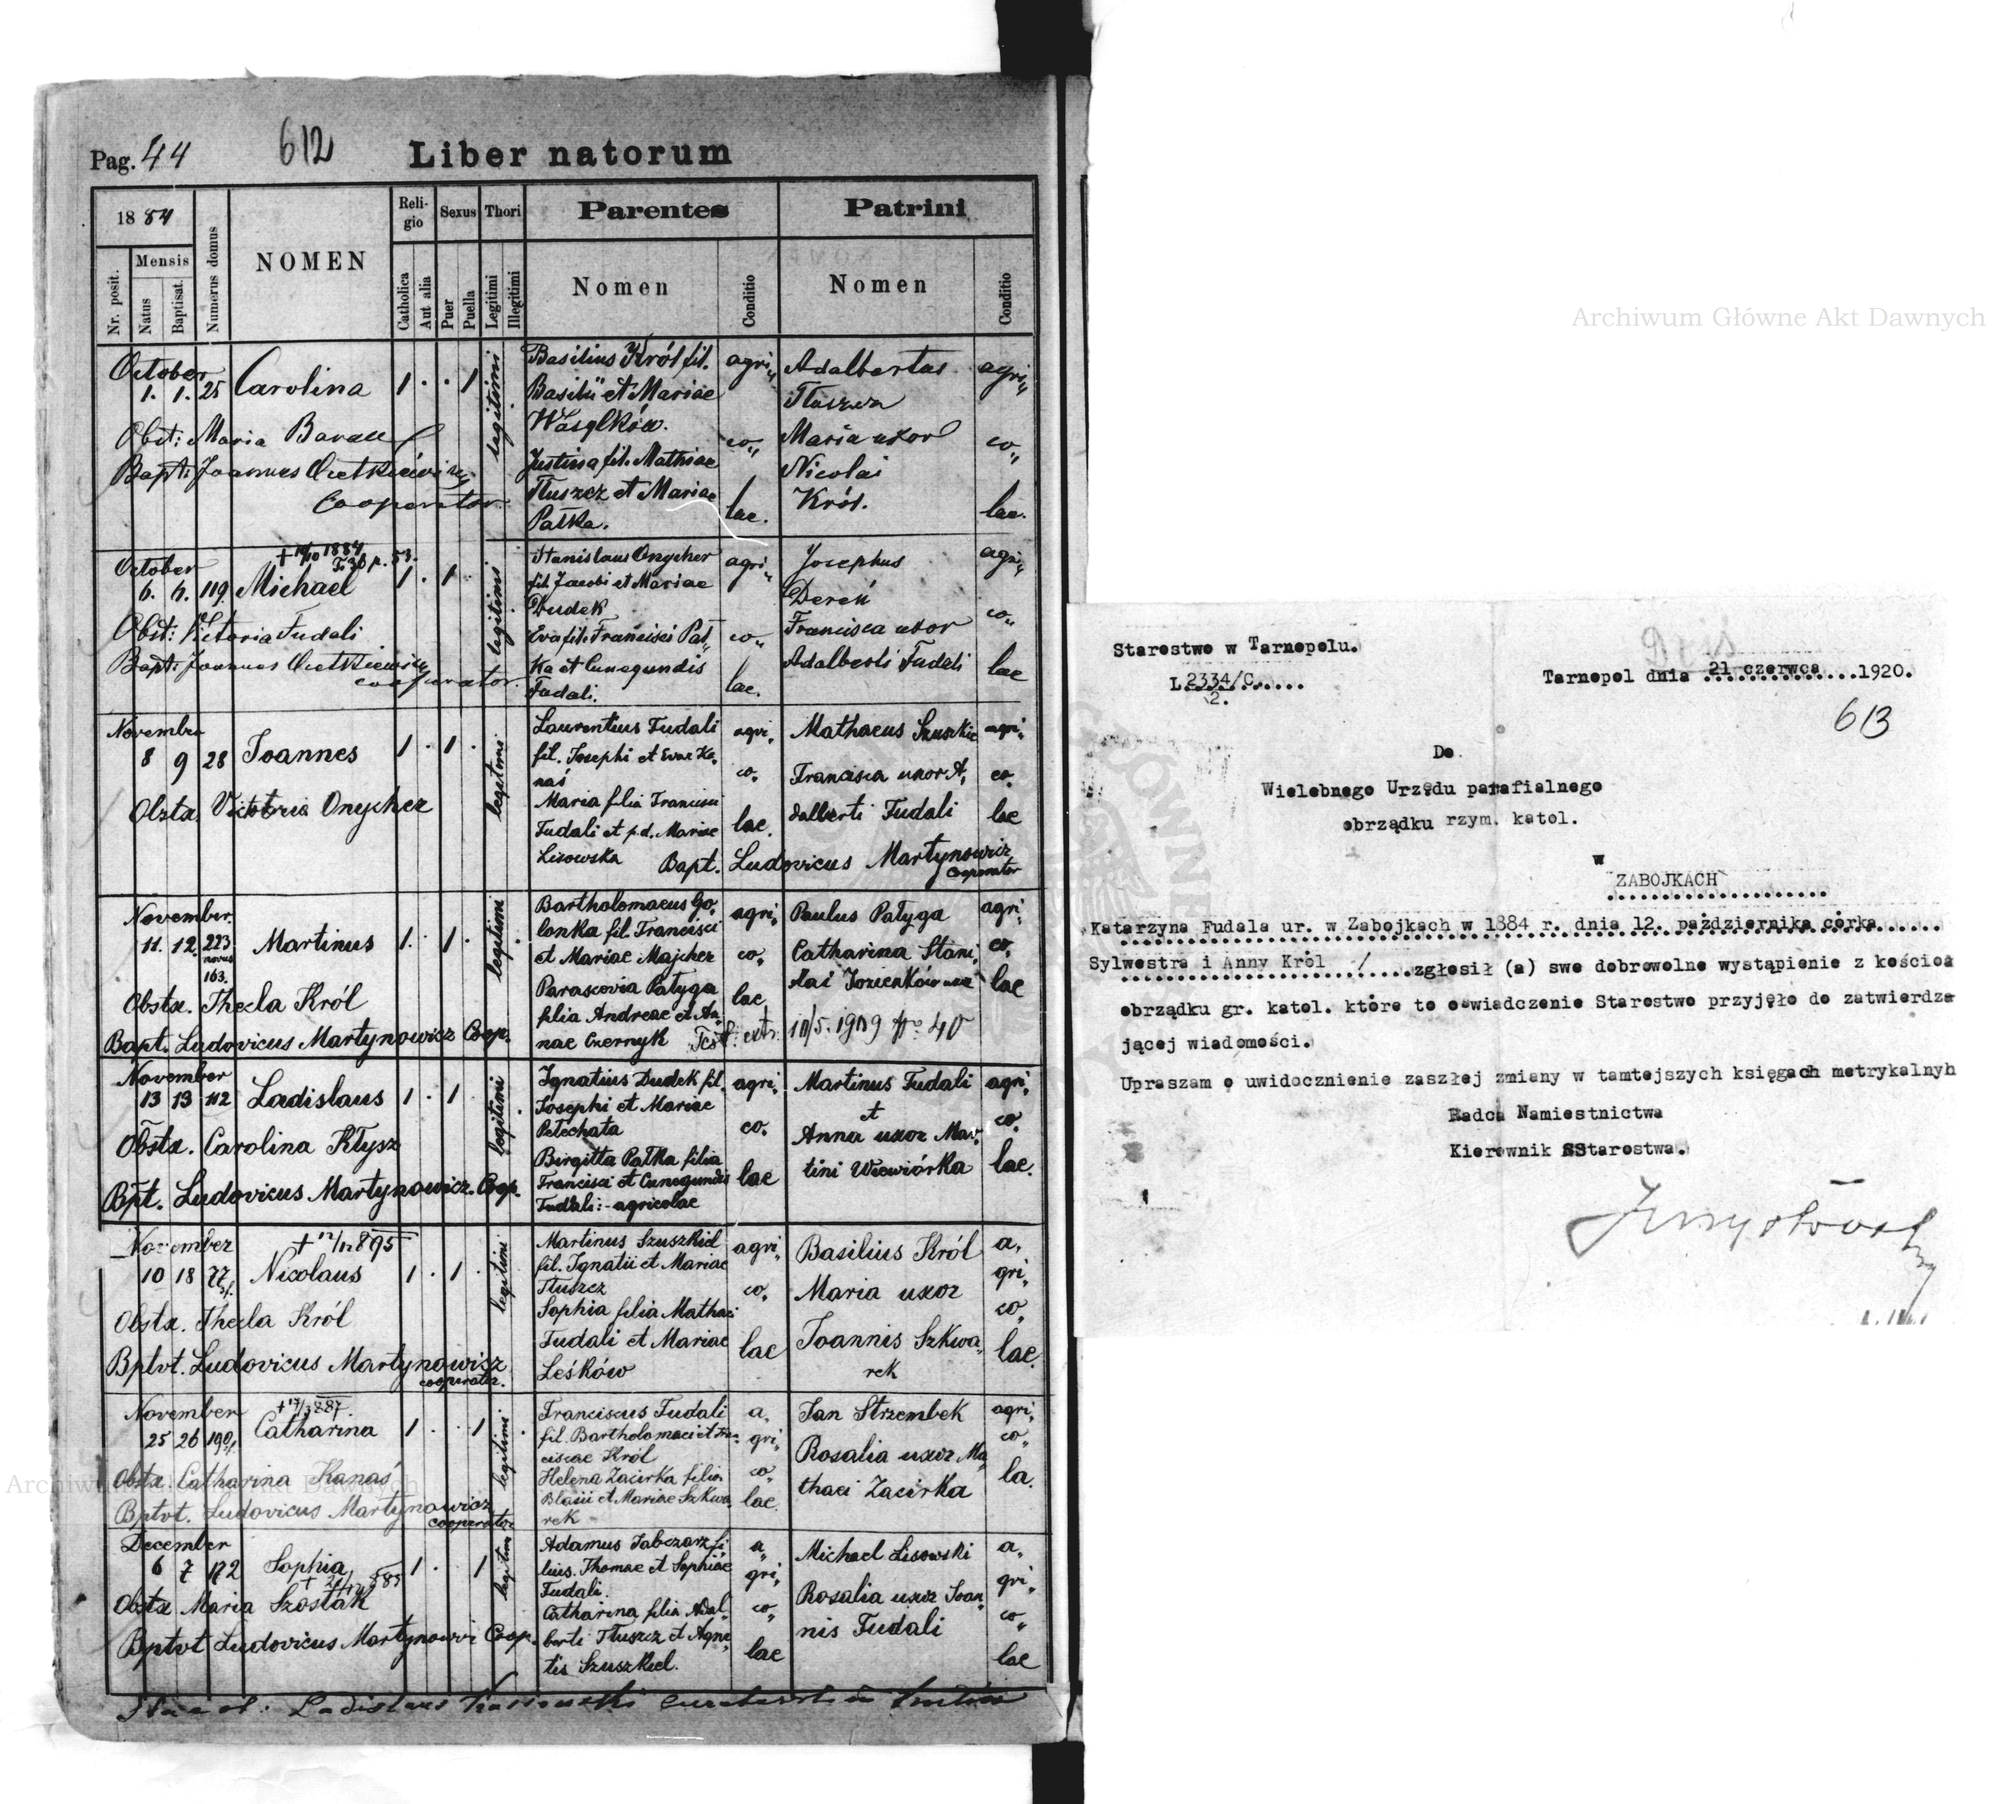 Pag. 44 612 Liber natorum
1884 Numerus domus NOMEN Religio Sexus Thori Parentes Patrini
Nr. posit. Mensis Natus Baptisat. Catholica Aut alia Puer Puella Legitimi Illegitimi Nomen Conditio Nomen Conditio
October
1. 1. 25 Carolina 1 . . 1 legitimi
Obst: Maria
Bapt: Joannes
Cooperator.
Basilius Król fil.
Basilii et Mariae
Wasylków.
Justina fil. Mathiae
Tłuszcz et Mariae
Pałka.
agri„
co„
lae.
Adalbertus
Tłuszcz
Maria uxor
Nicolai
Król.
agri„
co„
lae.
October
6. 6. 119. Michael 1 . 1 . legitimi
+ 10/10 1884
T. 36 p. 53.
Obst: Victoria Fudali
Bapt: Joannes
cooperator.
Stanislaus Onycher
fil. Jacobi et Mariae
Dudek
Eva fil. Francisci Pał„
ka et Cunegundis
Fudali.
agri„
co„
lae.
Josephus
Dereń
Francisca uxor
Adalberti Fudali
agri„
co„
lae
November
8 9 28 Joannes 1 . 1 . legitimi
Obstx. Victoria Onycher
Laurentius Fudali
fil. Josephi et Evae Ka„
naś
Maria filia Francisci
Fudali et p.d. Mariae
Lisowska
agri„
co„
lae.
Mathaeus Szuszkie
Francisca uxor A„
dalberti Fudali
agri„
co„
lae
Bapt. Ludovicus Martynowicz
cooperator
November
11. 12. 223 Martinus 1 . 1 . legitimi
novus
163.
Obstx. Thecla Król
Bapt. Ludovicus Martynowicz Coop.
Bartholomaeus Go„
lonka fil. Francisci
et Mariae Majcher
Parascevia Pałyga
filia Andreae et An„
nae Czernyk
agri„
co„
lae
Paulus Pałyga
Catharina Stani„
agri„
co„
lae
Test. extr. 10/5. 1939 No 40
November
13 13 112 Ladislaus 1 . 1 . legitimi
Obstx. Carolina Kłysz
Bpt. Ludovicus Martynowicz. Coop.
Ignatius Dudek fil.
Josephi et Mariae
Petechata
Birgitta Pałka filia
Francisci et Cunegundis
Fudali: - agricolae
agri„
co„
lae
Martinus Fudali
et
Anna uxor Mar„
tini Wiewiórka
agri„
co„
lae.
November
10 18 77 Nicolaus 1 . 1 . legitimi
+ 12/12 895
Obstx. Thecla Król
Bptvt. Ludovicus Martynowicz
cooperator.
Martinus Szuszkiel
fil. Ignatii et Mariae
Tłuszcz
Sophia filia Mathaei
Fudali et Mariae
Leśków
agri„
co„
lae
Basilius Król
Maria uxor
Joannis Szkwa„
rek
a„
gri„
co„
lae.
November
25 26 190 Catharina 1 . . 1 legitimi
Obstx. Catharina Kanaś
Bptvt. Ludovicus Martynowicz
cooperator
Franciscus Fudali
fil. Bartholomaei et Fran„
ciscae Król
Helena Zacirka filia
Blasii et Mariae Szkwa„
rek
a„
gri„
co„
lae.
Jan Strzembek
Rosalia uxor Ma„
thaei Zacirka
agri„
co„
la.
December
6 7 172 Sophia 1 . . 1 legitimi
Obstx Maria Szostak
Bptvt Ludovicus Martynowi Coop.
Adamus fi„
lius Thomae et Sophiae
Fudali.
Catharina filia Adal„
berti Tłuszcz et Agne„
tis Szuszkiel.
a„
gri„
co„
lae
Michael Lisowski
Rosalia uxor Joan„
nis Fudali
a„
gri„
co„
lae
Archiwum Główne Akt Dawnych
Starostwo w Tarnopolu.
L 2334/C
2.
Tarnopol dnia 21 czerwca 1920.
613
Do
Wielebnego Urzędu parafialnego
obrządku rzym. katol.
w
ZABOJKACH
Katarzyna Fudala ur. w Zabojkach w 1884 r. dnia 12. października córka
Sylwestra i Anny Król / zgłosił (a) swe dobrowolne wystąpienie z kościoa
obrządku gr. katol. które to oświadczenie Starostwo przyjęło do zatwierdza
jącej wiadomości.
Upraszam o uwidocznienie zaszłej zmiany w tamtejszych księgach metrykalnyh
Radca Namiestnictwa
Kierownik SStarostwa.
Archiwum Główne Akt Dawnych